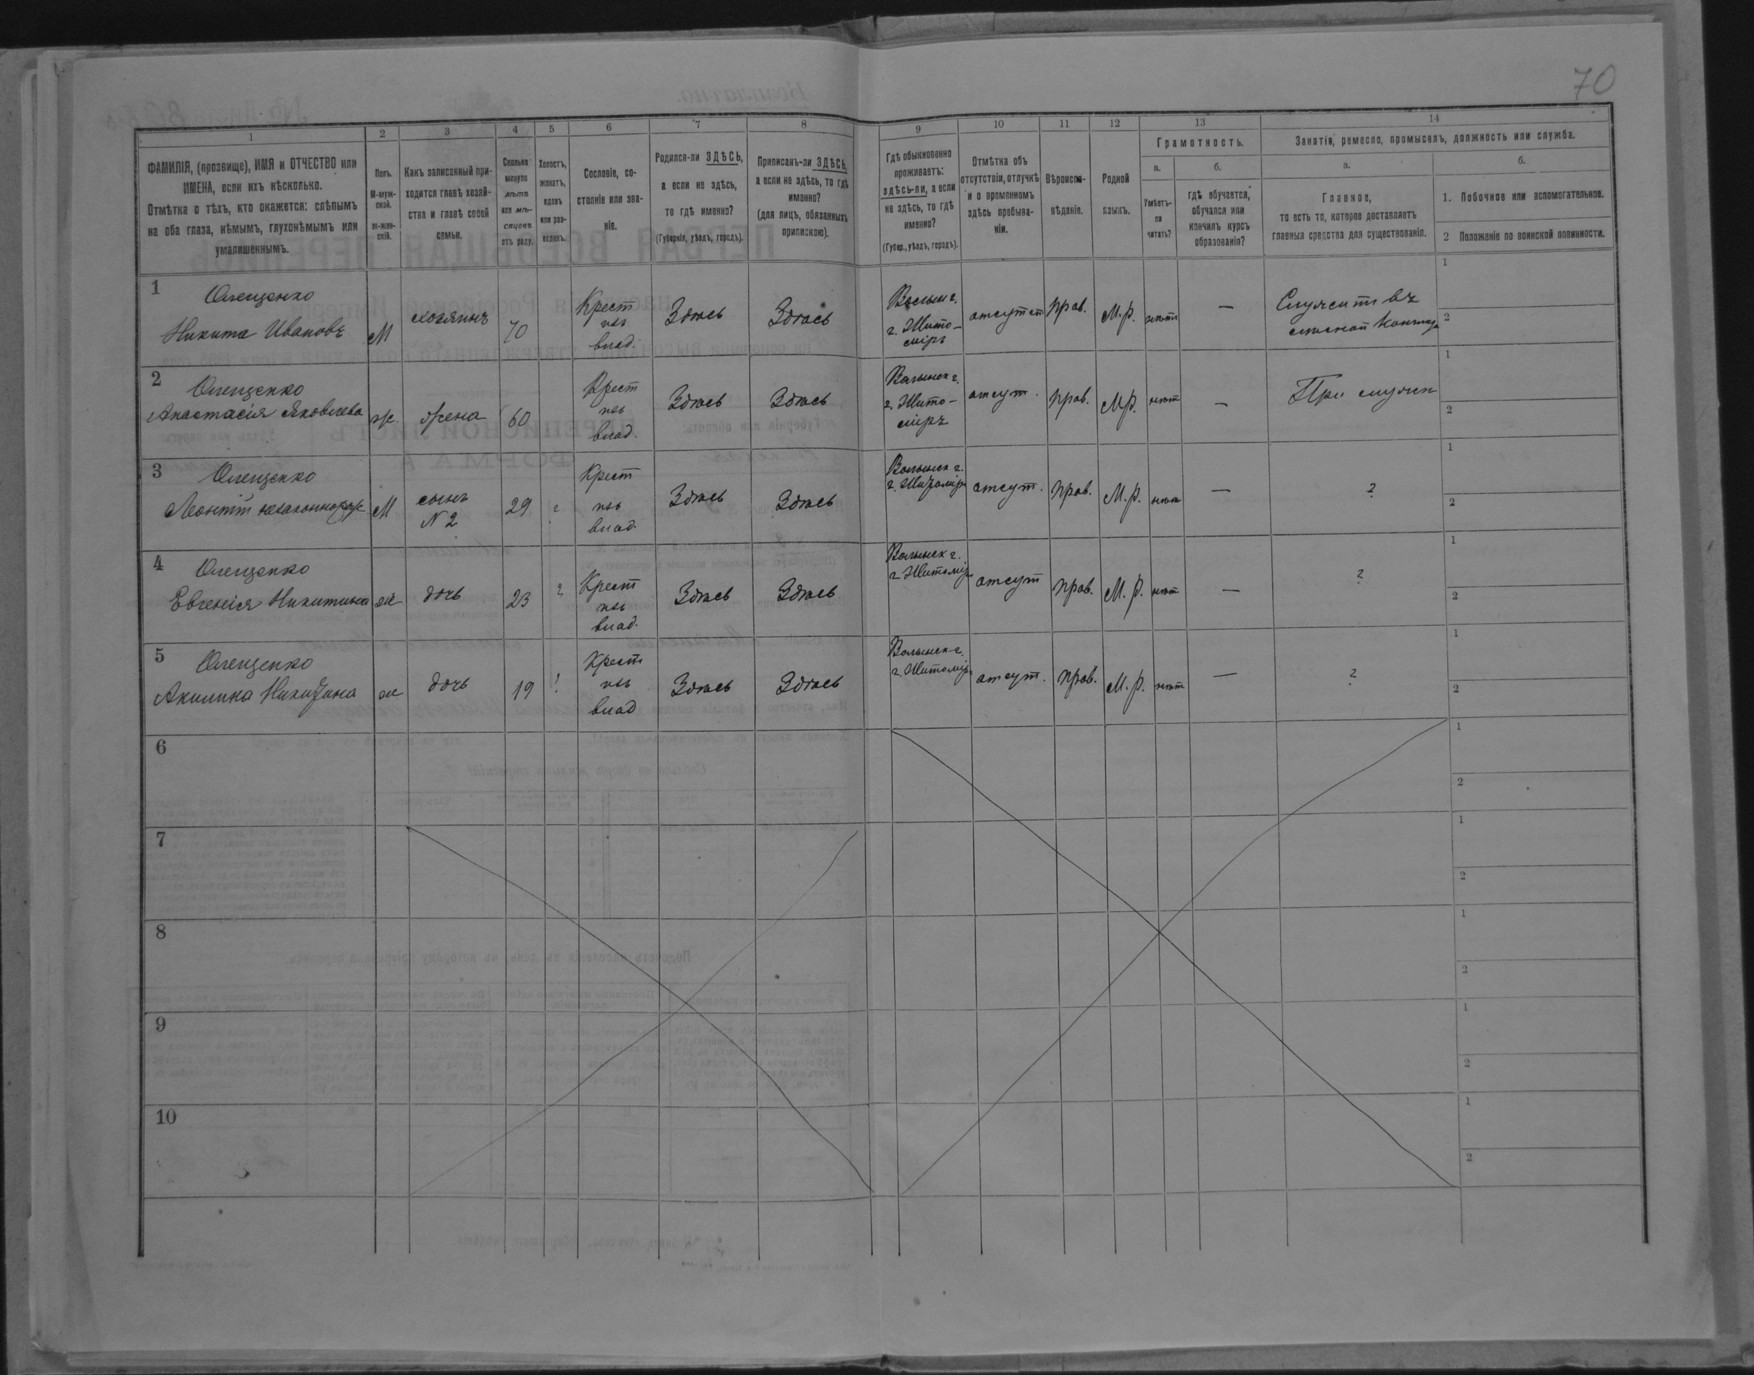 70
1 2 3 4 5 6 7 8 9 10 11 12 13 14
ФАМИЛІЯ, (прозвище), ИМЯ и ОТЧЕСТВО или
ИМЕНА, если ихъ нѣсколько.
Отмѣтка о тѣхъ, кто окажется: слѣпымъ
на оба глаза, нѣмымъ, глухонѣмымъ или
умалишеннымъ.
Полъ.
М-муж-
ской.
ж-жен-
скій.
Какъ записанный при-
ходится главѣ хозяй-
ства и главѣ своей
семьи.
Сколько
минуло
лѣтъ
или мѣ-
сяцевъ
отъ роду.
Холостъ,
женатъ,
вдовъ
или раз-
веденъ.
Сословіе, со-
стояніе или зва-
ніе.
Родился-ли ЗДѢСЬ,
а если не здѣсь,
то гдѣ именно?
(Губернія, уѣздъ, городъ).
Приписанъ-ли ЗДѢСЬ,
а если не здѣсь, то гдѣ
именно?
(для лицъ, обязанныхъ
припискою).
Гдѣ обыкновенно
проживаетъ:
здѣсь-ли, а если
не здѣсь, то гдѣ
именно?
(Губер., уѣздъ, городъ).
Отмѣтка объ
отсутствіи, отлучкѣ
и о временномъ
здѣсь пребыва-
ніи.
Вѣроиспо-
вѣданіе.
Родной
языкъ.
Грамотность.
а.
Умѣетъ-
ли
читать?
б.
гдѣ обучается,
обучался или
кончилъ курсъ
образованія?
Занятія, ремесло, промыселъ, должность или служба.
а.
Главное,
то есть то, которое доставляетъ
главныя средства для существованія.
б.
1. Побочное или вспомогательное.
2 Положеніе по воинской повинности.
1 Олещенко
Никита Ивановъ М хозяинъ 70
Крест
изъ
влад.
Здѣсь Здѣсь
г. Жито-
міръ
отсутст прав. М.р. нѣтъ —
1
2
2 Олещенко
Анастасія Яковлева ж. жена 60
Крест
изъ
влад.
Здѣсь Здѣсь
Волынск г.
г. Жито-
міръ
отсут. прав. М.р. нѣт —
1
2
3 Олещенко
Леонтій М сынъ
N 2
29 ?
Крест
изъ
влад.
Здѣсь Здѣсь
Волынск г.
г. Житомір
отсут. прав. М.р. нѣт — ?
1
2
4 Олещенко
Евгенія Никитина ж дочь 23 ?
Крест
изъ
влад.
Здѣсь Здѣсь
Волынск г.
г. Житомір
отсут прав. М.р. нѣт — ?
1
2
5 Олещенко
Акилина Никитина ж дочь 19 ?
Крест
изъ
влад
Здѣсь Здѣсь
Волынск г.
г. Житомір
отсут. прав. М.р. нѣт — ?
1
2
6
1
2
7
1
2
8
1
2
9
1
2
10
1
2